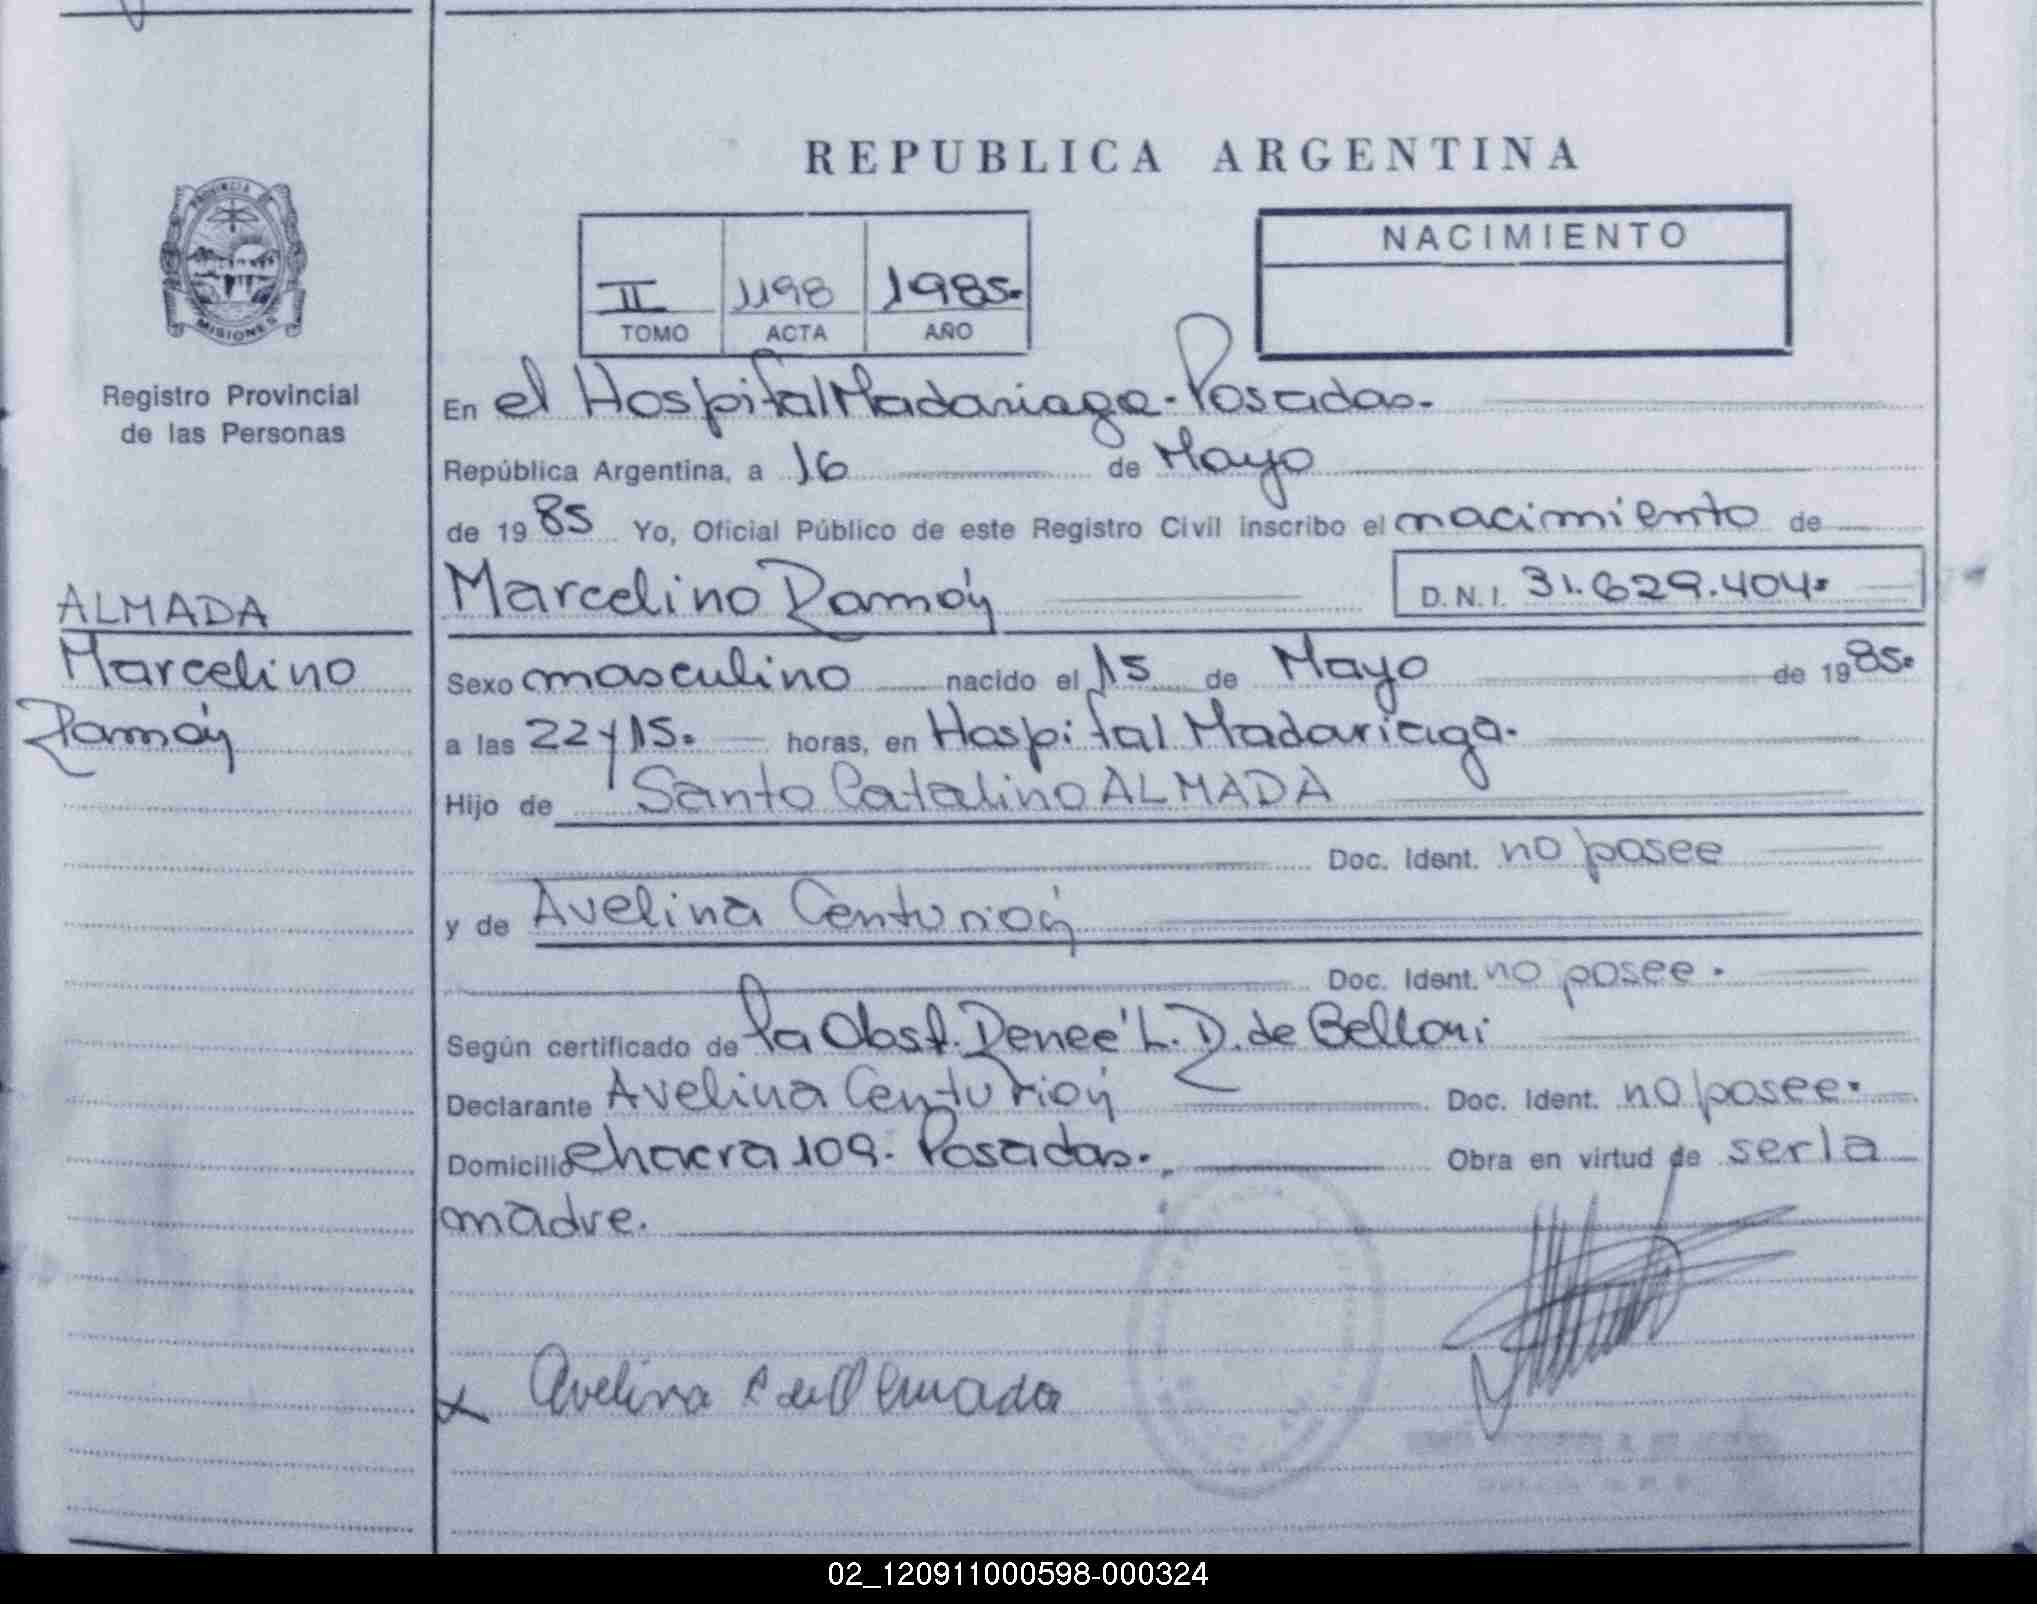 REPUBLICA ARGENTINA
PROVINCIA DE
MISIONES
Registro Provincial
de las Personas
II 1198 1985.
TOMO ACTA AÑO
NACIMIENTO
En el Hospital Madariaga - Posadas.
República Argentina, a 16 de Mayo
de 1985 Yo, Oficial Público de este Registro Civil inscribo el nacimiento de
Marcelino Ramón D.N.I. 31.629.404.
ALMADA
Marcelino
Ramón
Sexo masculino nacido el 15 de Mayo de 1985.
a las 22 y 15. horas, en Hospital Madariaga.
Hijo de Santo Catalino ALMADA
Doc. Ident. no posee
y de Avelina Centurión
Doc. Ident. no posee.
Según certificado de la Obst. Reneé L. R. de Belloni
Declarante Avelina Centurión Doc. Ident. no posee.
Domicilio chacra 109. Posadas. Obra en virtud de ser la
madre.
x Avelina C de Almada
02_120911000598-000324